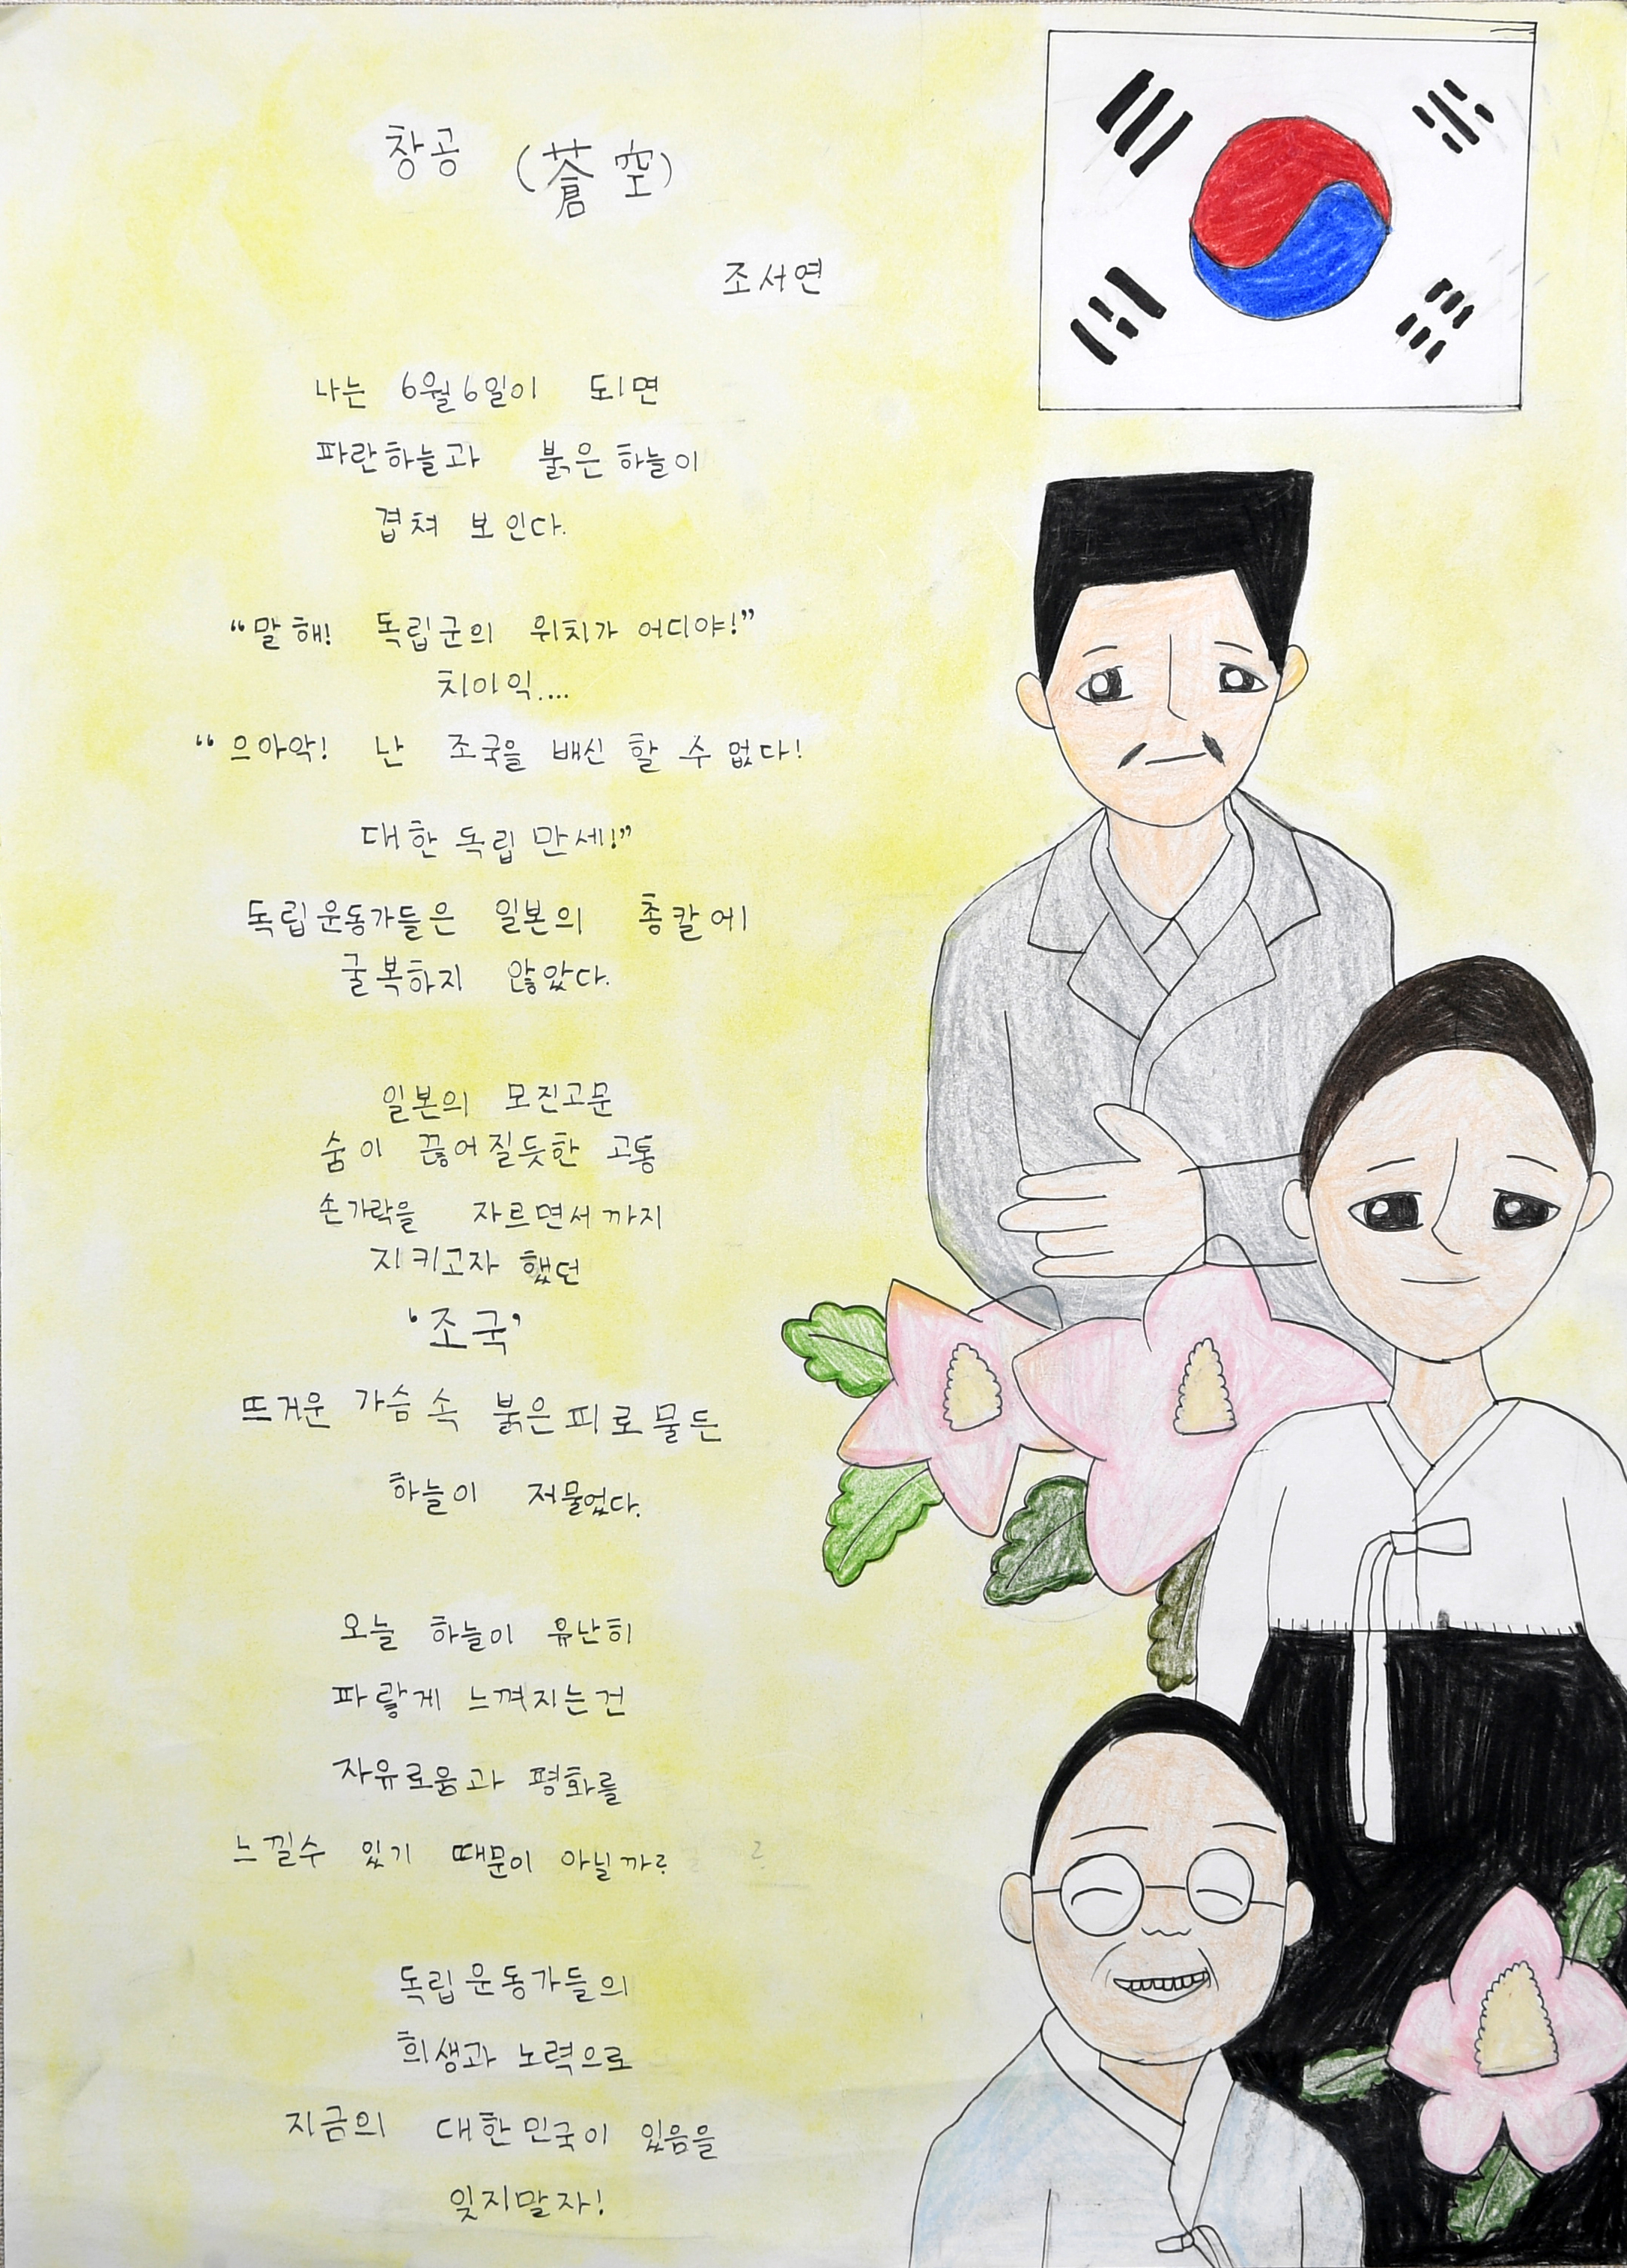 창공 (蒼空)
조서연
나는 6월6일이 되면
파란하늘과 붉은하늘이
겹쳐 보인다.
“말해! 독립군의 위치가 어디야!”
치이익....
“으아악! 난 조국을 배신 할 수 없다!
대한독립만세!”
독립운동가들은 일본의 총칼에
굴복하지 않았다.
일본의 모진고문
숨이 끊어질듯한 고통
손가락을 자르면서까지
지키고자 했던
‘조국’
뜨거운 가슴속 붉은피로물든
하늘이 저물었다.
오늘 하늘이 유난히
파랗게 느껴지는건
자유로움과 평화를
느낄수 있기 때문이 아닐까?
독립운동가들의
희생과 노력으로
지금의 대한민국이 있음을
잊지말자!